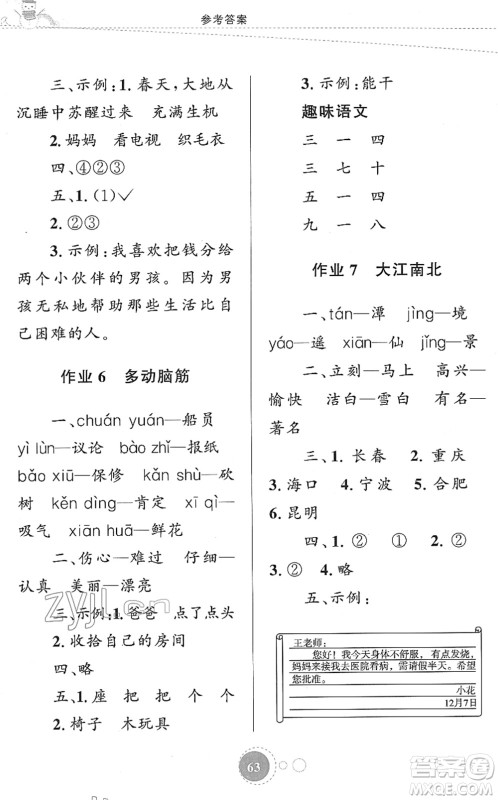 参考答案
三、示例：1. 春天，大地从
沉睡中苏醒过来　充满生机
2. 妈妈　看电视　织毛衣
四、④②③
五、1. (1)✓
2. ②③
3. 示例：我喜欢把钱分给
两个小伙伴的男孩。因为男
孩无私地帮助那些生活比自
己困难的人。
作业 6　多动脑筋
一、chuán yuán—船员
yì lùn—议论　bào zhǐ—报纸
bǎo xiū—保修　kǎn shù—砍
树　kěn dìng—肯定　xī qì—
吸气　xiān huā—鲜花
二、伤心—难过　仔细—
认真　美丽—漂亮
三、示例：1. 爸爸　点了点头
2. 收拾自己的房间
四、略
五、1. 座　把　把　个　个
2. 椅子　木玩具
3. 示例：能干
趣味语文
三　一　四
三　七　十
五　一　四
九　一　八
作业 7　大江南北
一、tán—潭　jìng—境
yáo—遥　xiān—仙　jǐng—景
二、立刻—马上　高兴—
愉快　洁白—雪白　有名—
著名
三、1. 长春　2. 重庆
3. 海口　4. 宁波　5. 合肥
6. 昆明
四、1. ②　①　2. ②
3. ②　4. 略
五、示例：
王老师：
您好！我今天身体不舒服，有点发烧，
妈妈来接我去医院看病，需请假半天。希望
您批准。
小花
12月7日
63
zyjl.cn
作业精灵
答案圈
MXQE.COM